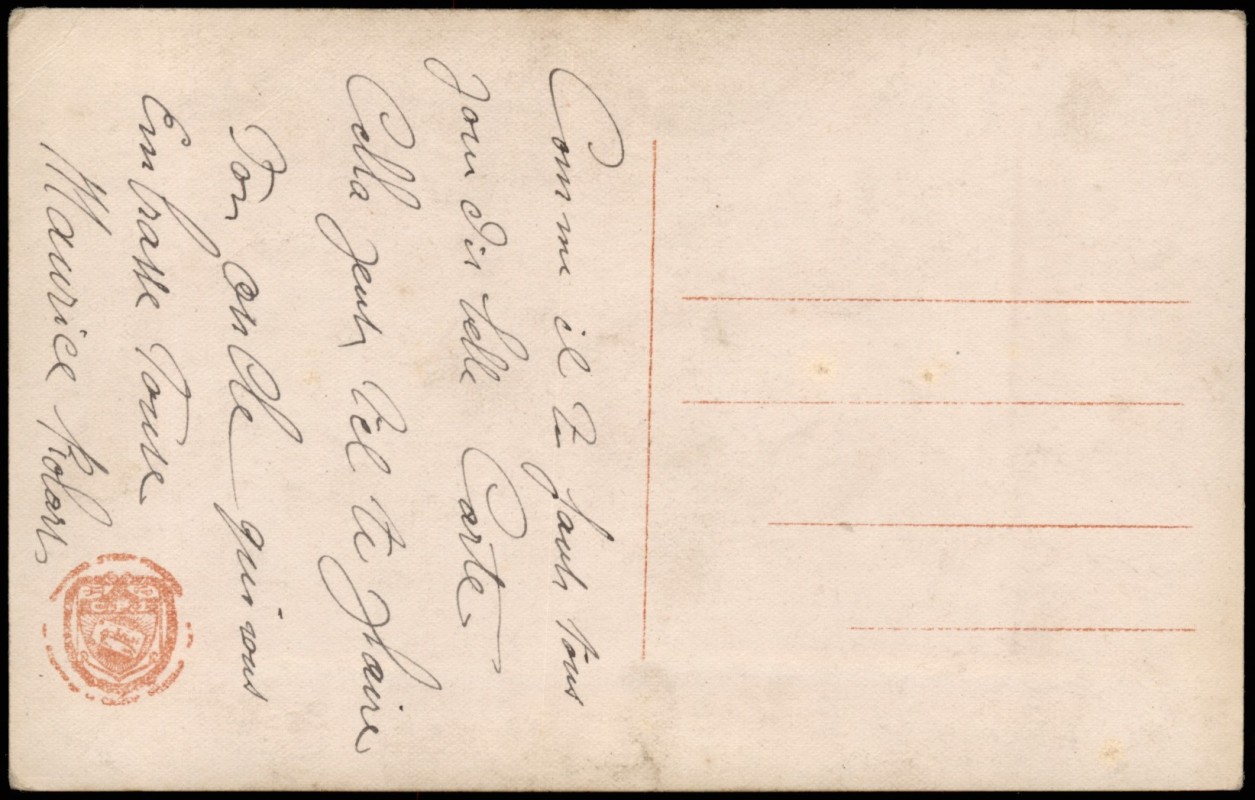 Comme il tu faut tous
jour dis belle Carte
Cella jeut til te plaire
Ton oncle qui vous
Embrasse Touse
Maurice